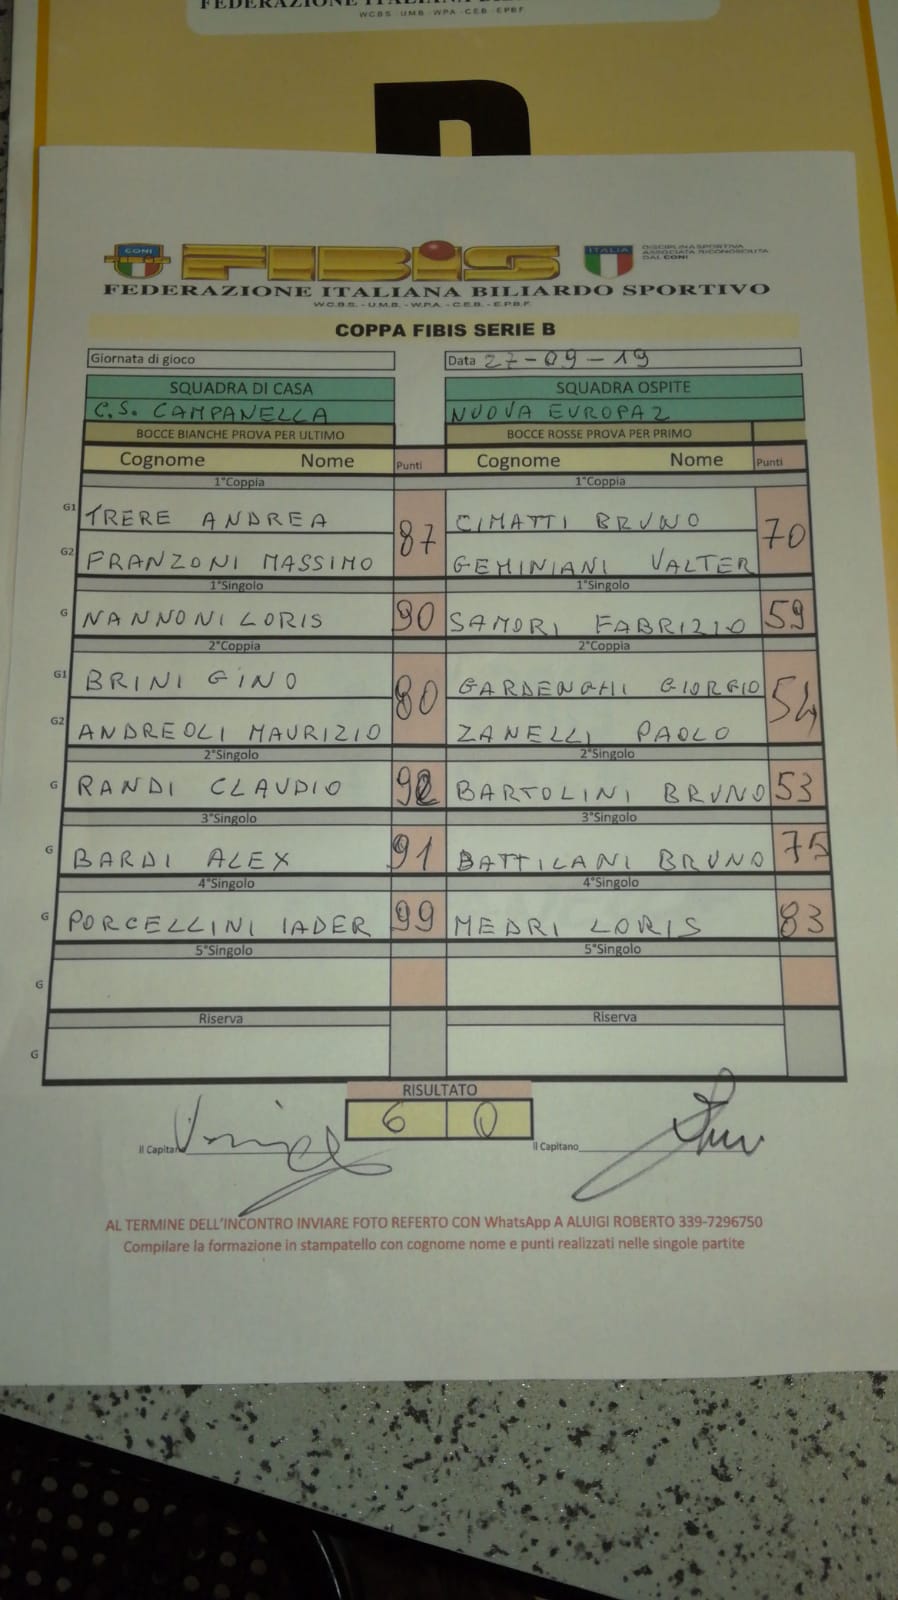 FEDERAZIONE ITALIANA
W.C.B.S. - U.M.B. - W.P.A. - C.E.B. - E.P.B.F.
CONI FIBIS ITALIA DISCIPLINA SPORTIVA
ASSOCIATA RICONOSCIUTA
DAL CONI
FEDERAZIONE ITALIANA BILIARDO SPORTIVO
W.C.B.S. - U.M.B. - W.P.A. - C.E.B. - E.P.B.F.
COPPA FIBIS SERIE B
Giornata di gioco Data 27-09-19
SQUADRA DI CASA SQUADRA OSPITE
C.S. CAMPANELLA NUOVA EUROPA 2
BOCCE BIANCHE PROVA PER ULTIMO BOCCE ROSSE PROVA PER PRIMO
Cognome Nome Punti Cognome Nome Punti
1°Coppia 1°Coppia
G1 TRERE ANDREA 87 CIMATTI BRUNO 70
G2 FRANZONI MASSIMO GEMINIANI VALTER
1°Singolo 1°Singolo
G NANNONI LORIS 90 SAMORI FABRIZIO 59
2°Coppia 2°Coppia
G1 BRINI GINO 80 GARDENGHI GIORGIO 54
G2 ANDREOLI MAURIZIO ZANELLI PAOLO
2°Singolo 2°Singolo
G RANDI CLAUDIO BARTOLINI BRUNO 53
3°Singolo 3°Singolo
G BARDI ALEX 91 BATTILANI BRUNO 75
4°Singolo 4°Singolo
G PORCELLINI IADER 99 MEDRI LORIS 83
5°Singolo 5°Singolo
G
Riserva Riserva
G
RISULTATO
6 0
Il Capitano Il Capitano
AL TERMINE DELL'INCONTRO INVIARE FOTO REFERTO CON WhatsApp A ALUIGI ROBERTO 339-7296750
Compilare la formazione in stampatello con cognome nome e punti realizzati nelle singole partite